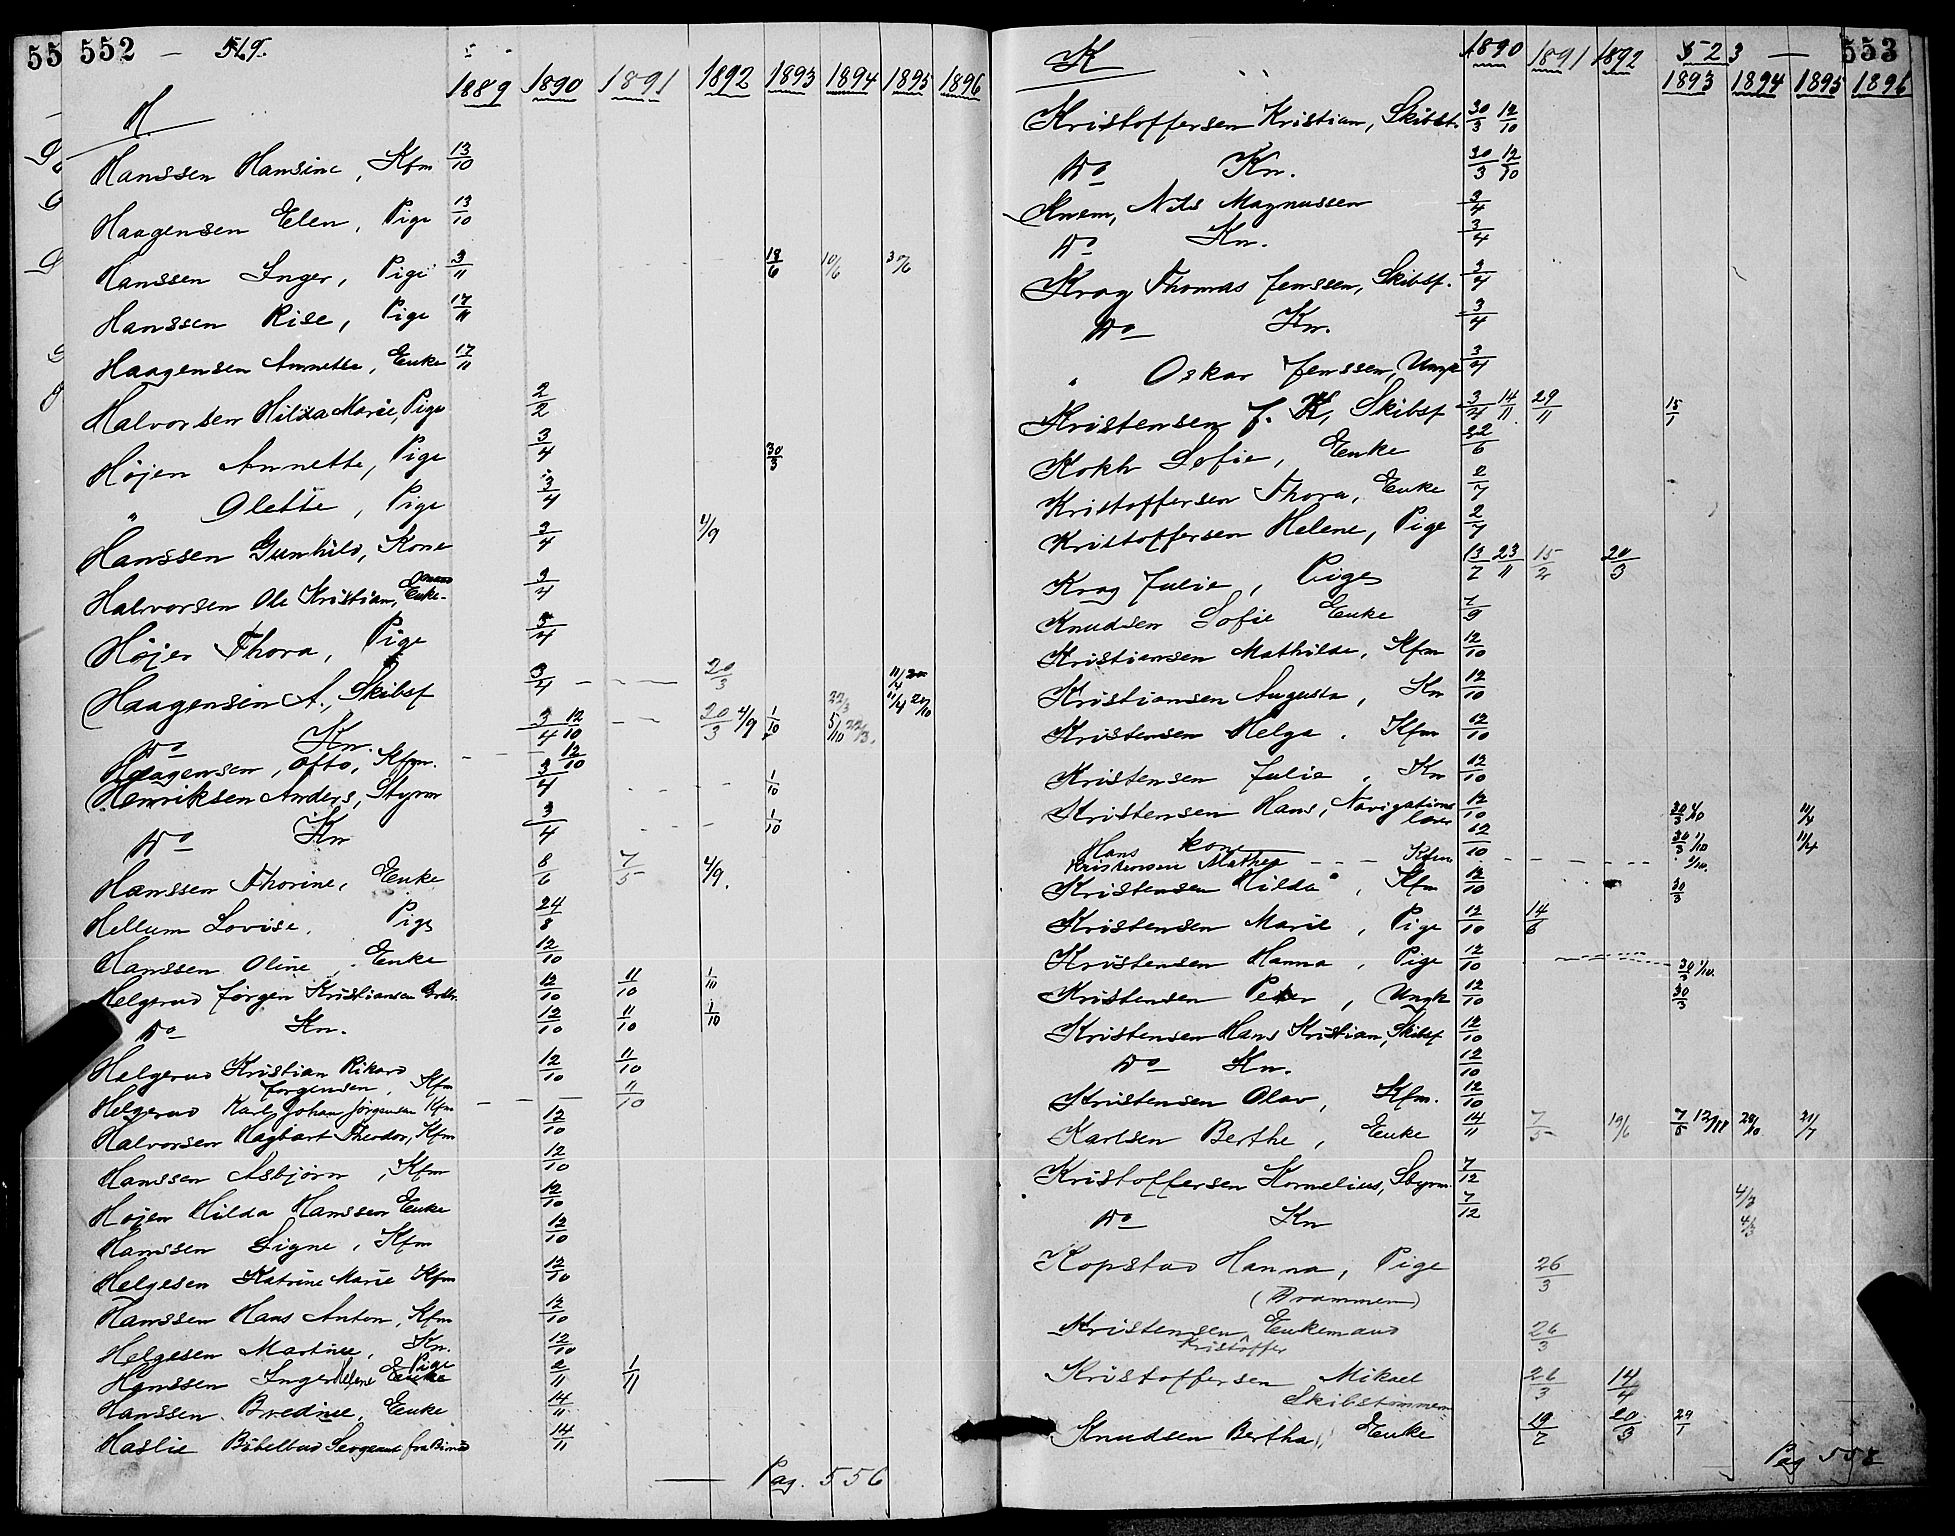 552 — 519.
1889 1890 1891 1892 1893 1894 1895 1896
H.
Hanssen Hansine, Kfm 13/10
Haagensen Elen, Pige 13/10
Hanssen Inger, Pige 3/11 18/6 10/6 30/6
Hanssen Rise, Pige 17/11
Haagensen Annette, Enke 17/11
Halvorsen Hilda Marie, Pige 2/2
Højen Annette, Pige 3/4 30/3
" Olette, Pige 3/4
Hanssen Gunhild, Kone 3/4 4/9
Halvorsen Ole Kristian, Enkemand 3/4
Højer Thora, Pige 3/4
Haagensen A., Skibsf 3/4 20/3 11/4
Do Kn. 3/4 12/10 20/3 4/9 1/10 5/10 22/3 11/4 20/10
Haagensen, Otto, Kfm. 12/10
Henriksen Anders, Styrm 3/4 1/10
Do Kn 3/4 1/10
Hanssen Thorine, Enke 8/6 7/5 4/9.
Hellum Lovise, Pige 24/8
Hanssen Oline, Enke 12/10
Helgerud Jørgen Kristiansen 12/10 11/10 1/10
Do Kn. 12/10 11/10 1/10
Helgerud Kristian Rikard 12/10 11/10
Jørgensen, Kfm
Helgerud Karl Johan Jörgensen Kfm 11/10
Halvorsen Hagbart Theodor, Kfm 12/10
Hanssen Asbjørn, Kfm 12/10
Højen Hilda Hanssen Enke 12/10
Hanssen Signe, Kfm 12/10
Helgesen Katrine Marie Kfm 12/10
Hanssen Hans Anton, Kfm 12/10
Helgesen Martine, Kn. 12/10
Hanssen Inger Helene Pige 2/11 1/11
Hanssen Bredine, Enke 14/11
Haslie Sergeant fra 14/11
Pag. 556
K 523 — 553
1890 1891 1892 1893 1894 1895 1896
Kristoffersen Kristian, Skibst. 30/3 12/10
Do Kn. 30/3 12/10
Knem, Nils Magnussen 3/4
Do Kn. 3/4
Krag Thomas Jenssen, Skibsf. 3/4
Do Kn. 3/4
" Oskar Jenssen, Ungk 3/4
Kristensen J. K, Skibsf 3/4 14/11 29/11 15/1
Kokh Sofie, Enke 22/6
Kristoffersen Thora, Enke 2/7
Kristoffersen Helene, Pige 2/7
Krag Julie, Pige 13/2 23/11 15/2 20/3
Knudsen Sofie Enke 7/9
Kristiansen Mathilde, Kfm 12/10
Kristiansen Augusta, Kn 12/10
Kristensen Helga, Kfm 12/10
Kristensen Julie, Kn 12/10
Kristensen Hans, Navigations 12/10 30/3 1/10 11/4
lærer
Hans kone 12/10 30/3 1/10 11/4
Kristensen Mathea Kfm 1/10.
Kristensen Hilda, Kfm 12/10 30/3
Kristensen Marie, Pige 12/10 14/6
Kristensen Hanna, Pige 12/10 30/3 1/10.
Kristensen Peter, Ungk 12/10 30/3
Kristensen Hans Kristian, Skibsf 12/10
Do Kn. 12/10
Kristensen Olav, Kfm. 12/10
Karlsen Berthe, Enke 14/11 7/5 19/6 7/5 21/7
Kristoffersen Kornelius, Styrm. 7/12 4/3
Do Kn 7/12 4/3
Kopstad Hanna, Pige 26/3
(Drammen)
Kristensen Enkemand 26/3
Kristoffer
Kristoffersen Mikael 26/3 14/4
Skibstømmerm
Knudsen Bertha, Enke 19/2 20/3 29/1
Pag 558